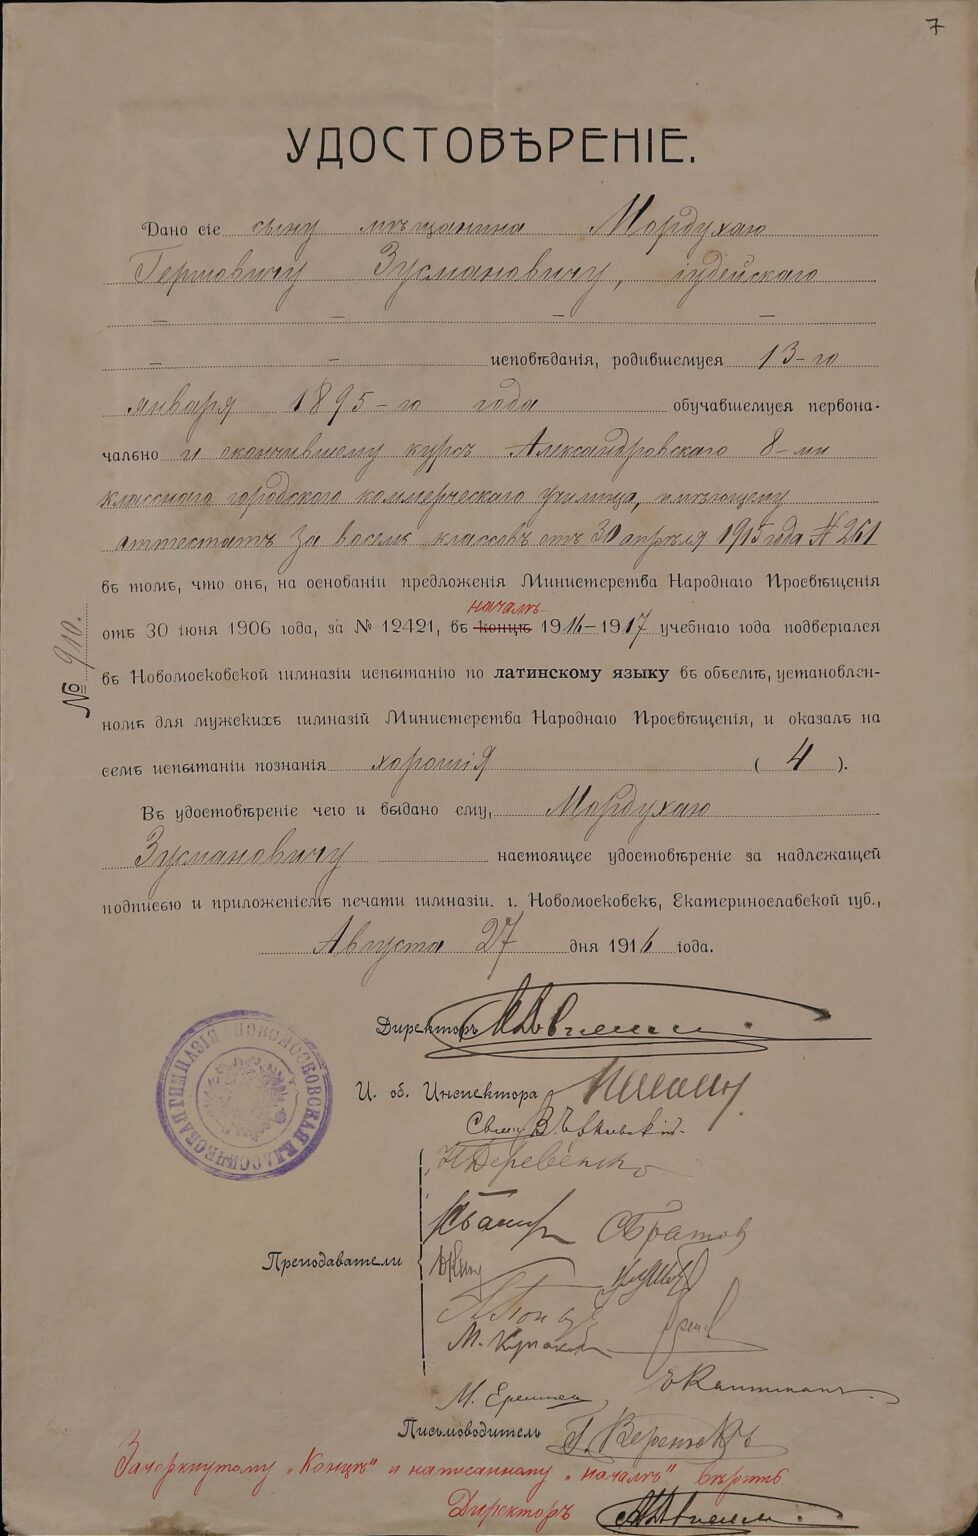 7
УДОСТОВѢРЕНІЕ.
Дано сіе сыну мѣщанина Мордухаю
Гершовичу Зусмановичу, іудейскаго
— — — —
— — исповѣданія, родившемуся 13-го
января 1895-го года обучавшемуся первона-
чально и окончившему курсъ Александровскаго 8-ми
класснаго городского коммерческаго училища, имѣющему
аттестатъ за восемь классовъ отъ 30 апрѣля 1915 года № 261
въ томъ, что онъ, на основаніи предложенія Министерства Народнаго Просвѣщенія
началѣ
отъ 30 іюня 1906 года, за № 12421, въ концѣ 1916-1917 учебнаго года подвергался
въ Новомосковской гимназіи испытанію по латинскому языку въ объемѣ, установлен-
номъ для мужскихъ гимназій Министерства Народнаго Просвѣщенія, и оказалъ на
семъ испытаніи познанія хорошія ( 4 ).
Въ удостовѣреніе чего и выдано ему, Мордухаю
Зусмановичу настоящее удостовѣреніе за надлежащей
подписью и приложеніемъ печати гимназіи. г. Новомосковскъ, Екатеринославской губ.,
Августа 27 дня 1916 года.
№ 910.
Директоръ
НОВОМОСКОВСКАЯ КЛАССИЧЕСКАЯ ГИМНАЗІЯ
И. об. Инспектора
Свящ. В.
Н. Деревенско
С. Братов
Преподаватели
М.
М. Еремен
Е. Каттман
Письмоводитель Г.
Зачеркнутому „Концѣ" и написанному „началѣ" вѣрить
Директоръ